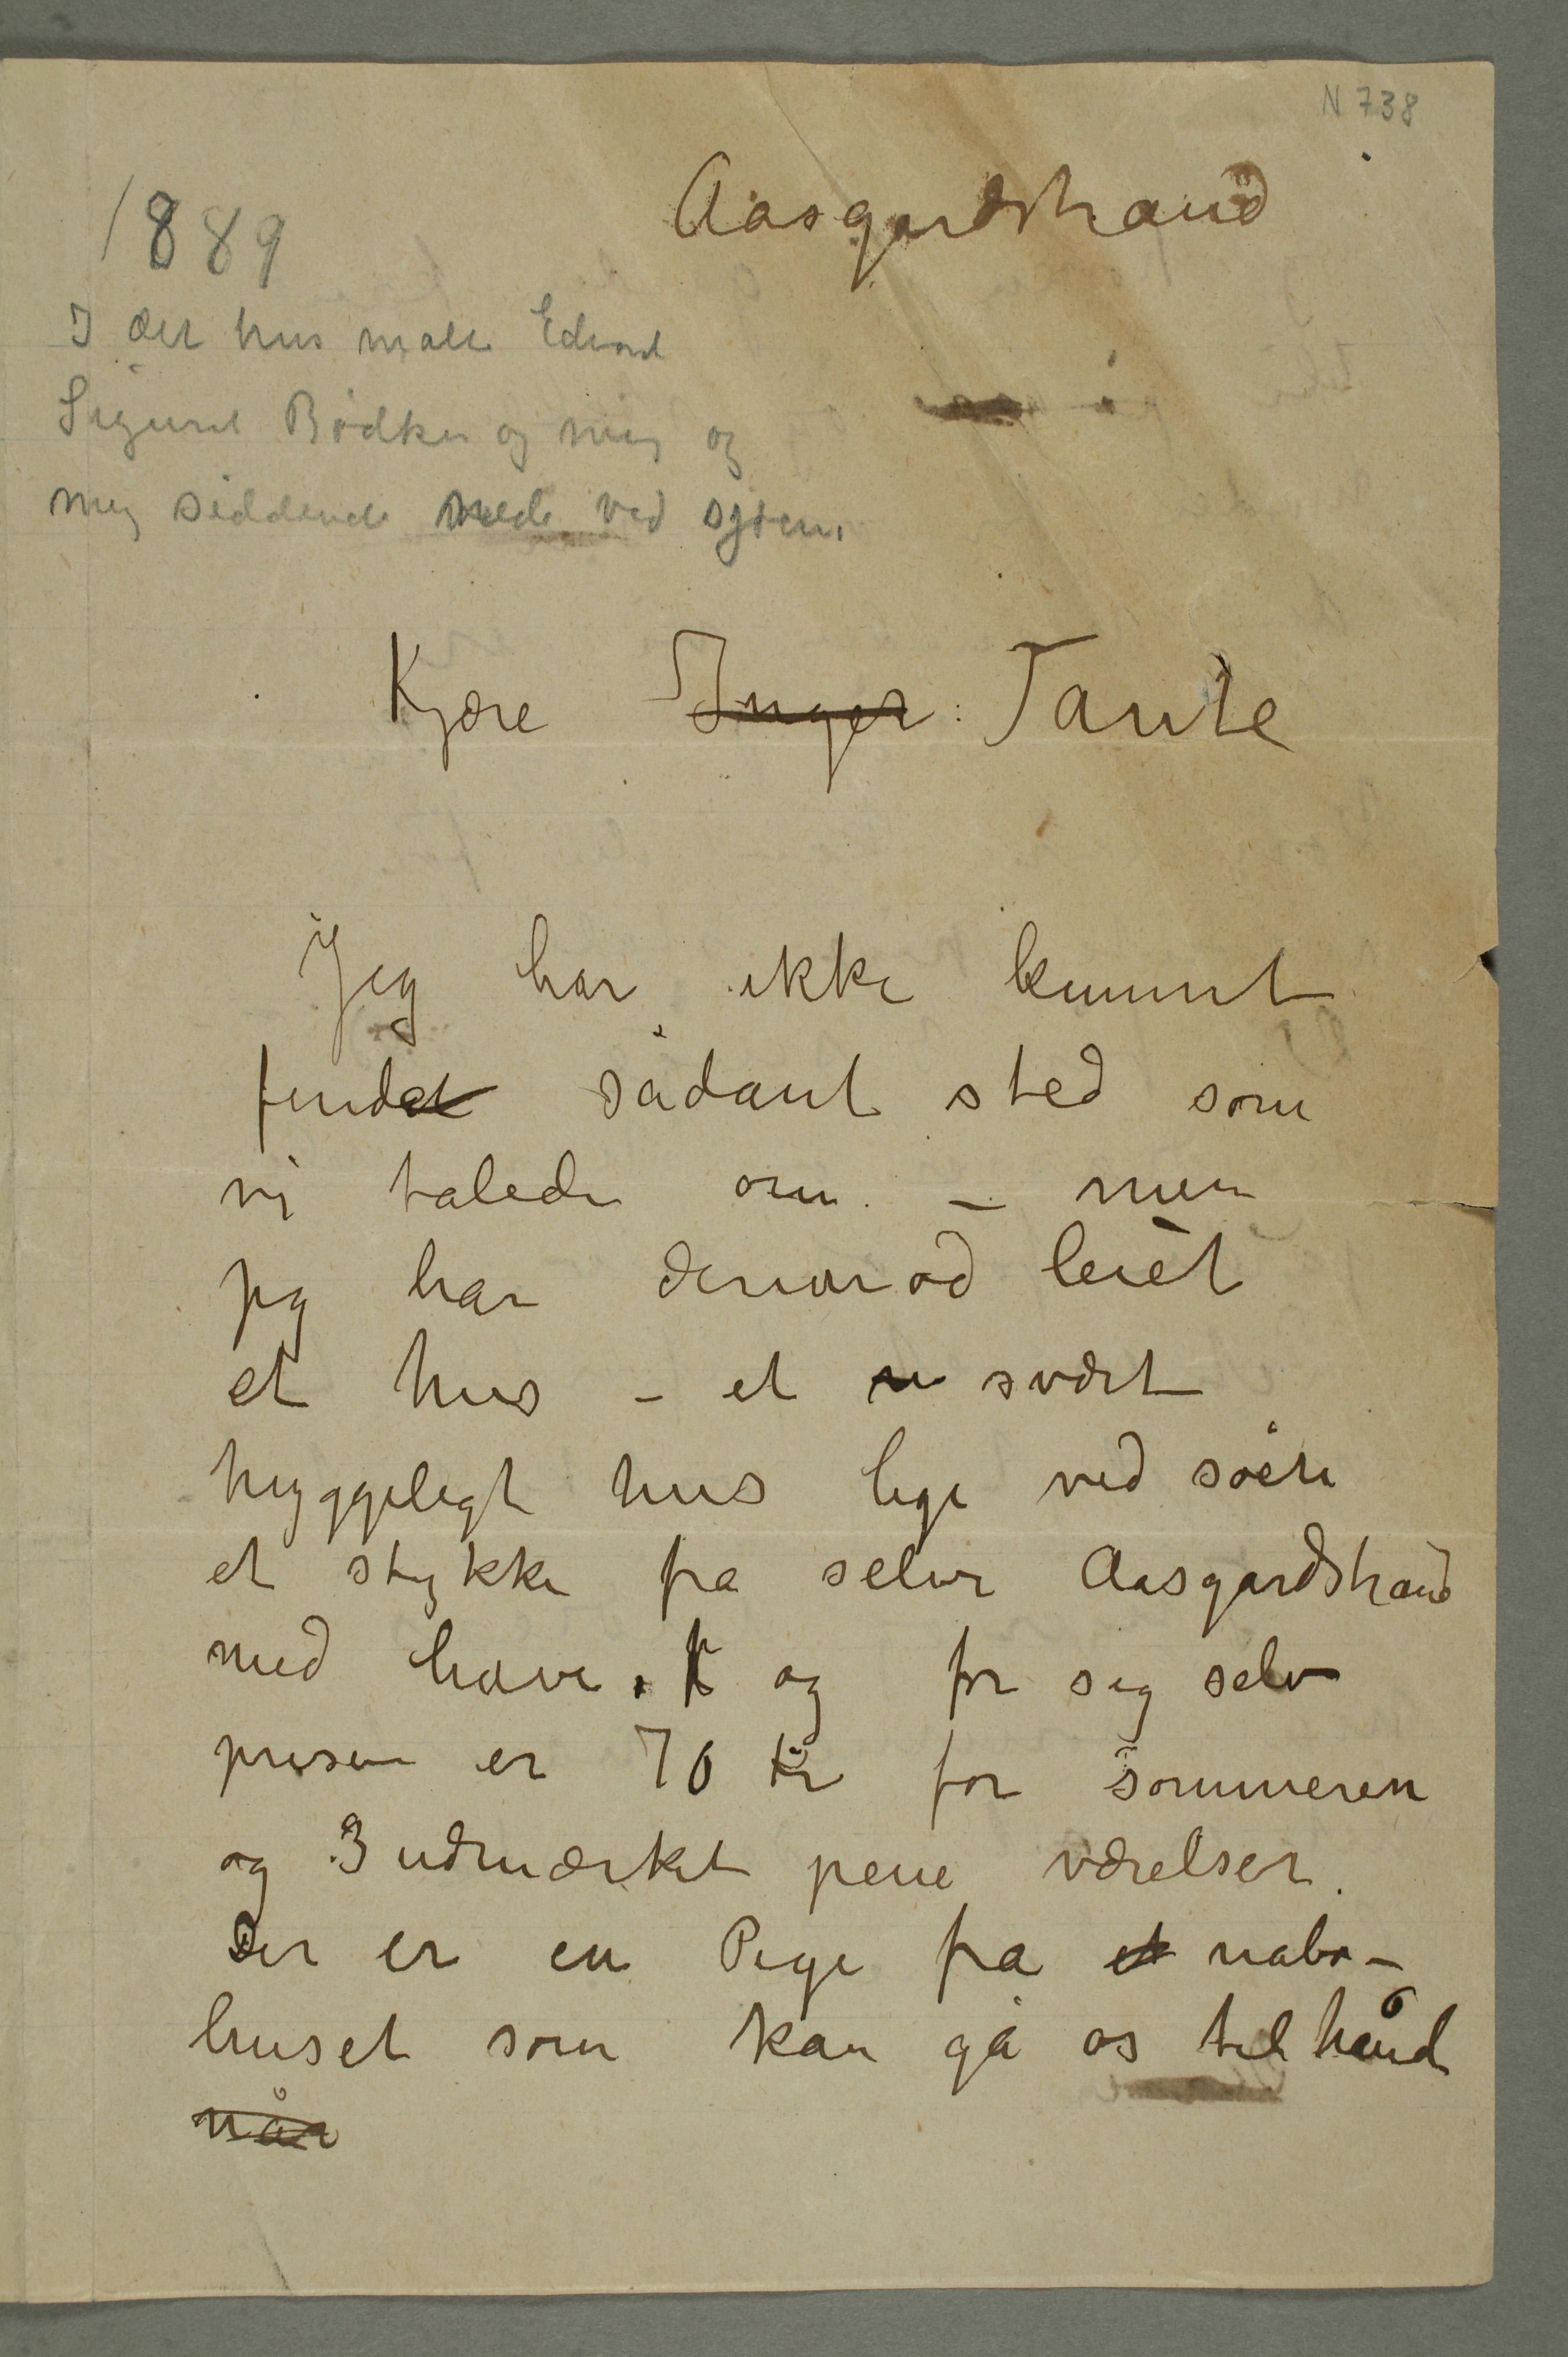 N 738
Aasgardstrand
1889
I det hus malte Edvard
Sigurd Bødker og mig og
mig siddende nede ved sjøen.
Kjære Inger Tante
Jeg har ikke kunnet
findet sådant sted som
vi talede om – men
jeg har derimod leiet
et hus – et svært
hyggeligt hus lige ved søen
et stykke fra selve Aasgardstrand
med have. og for sig selv
prisen er 70 kr for sommeren
og 3 udmærket pene værelser.
Der er en Pige fra et nabo-
huset som kan gå os til hånd
når